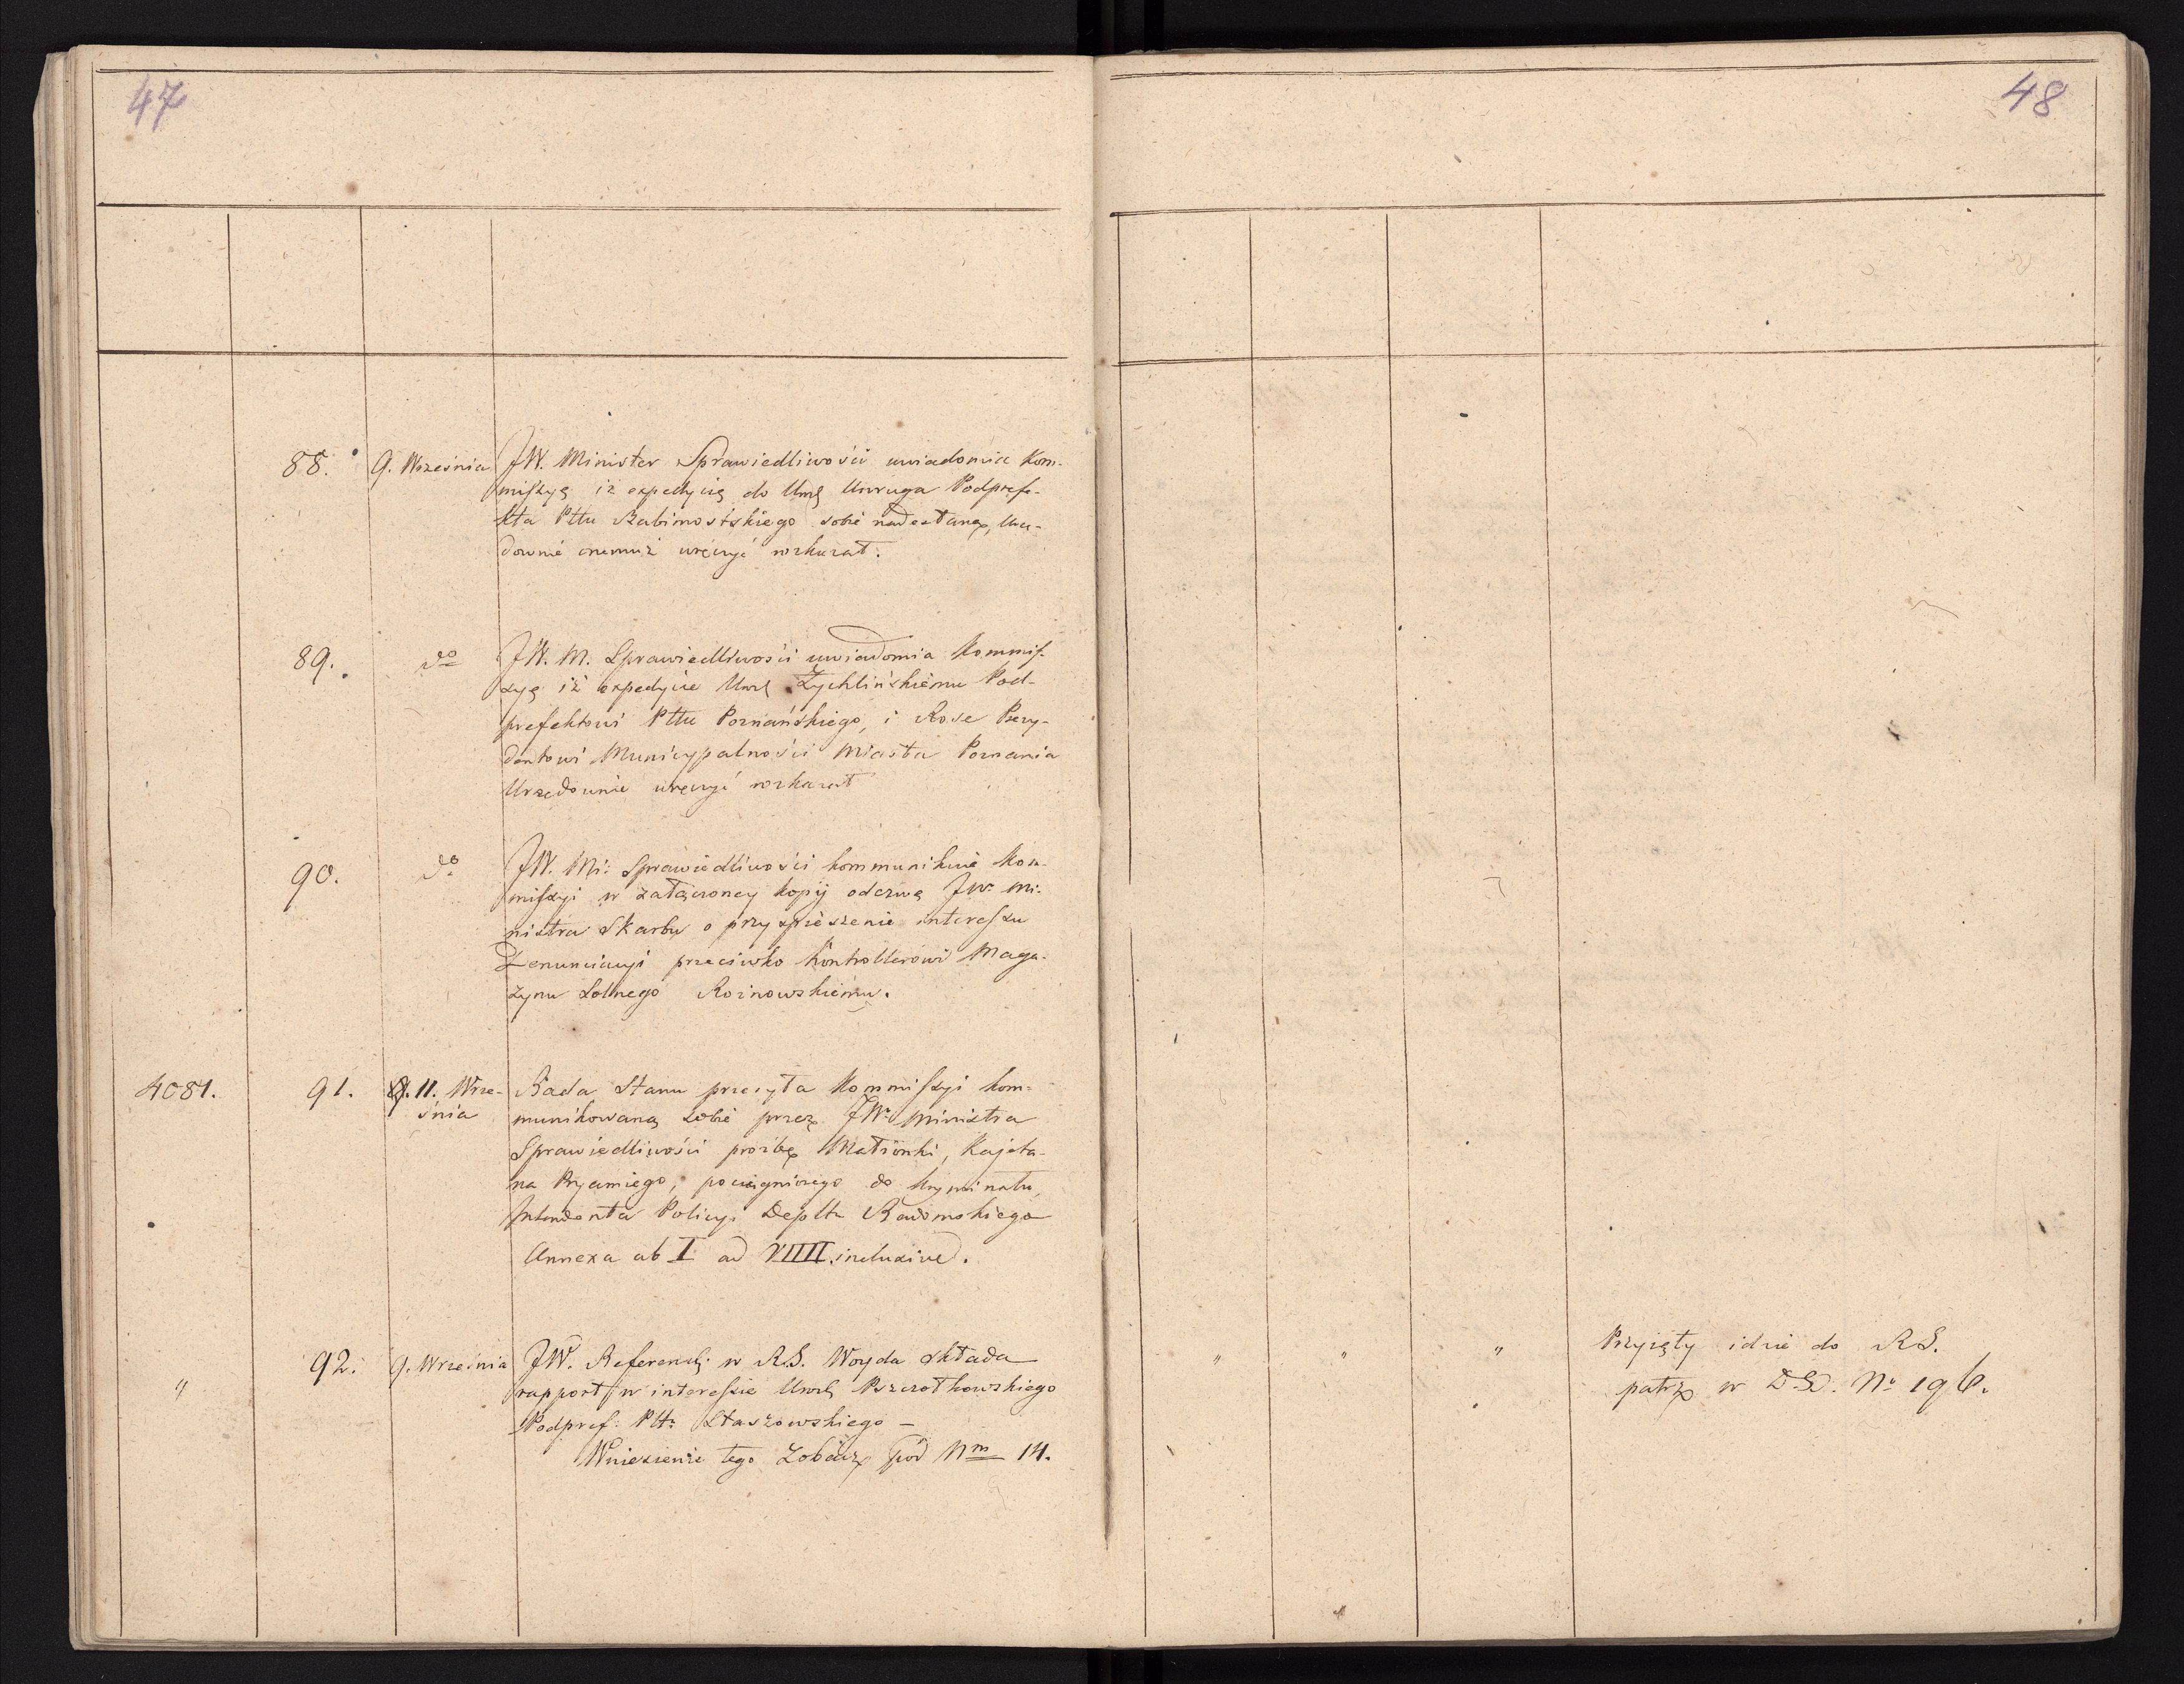 47
48
88. 9. Września JW. Minister Sprawiedliwości uwiadomia Kom-
mißyą iż expedycią do Urn. Unruga Podprefe-
kta Pttu Babimostskiego sobie nadesłaną, Urzę-
downie onemuż wręczyć rozkazał.
89. do JW. M. Sprawiedliwości uwiadomia Kommiß-
syą iż expedycie Żychlińskiemu Pod-
prefektowi Pttu Poznańskiego, i Rose Prezy-
dentowi Municypalności Miasta Poznania
Urzędownie wręczyć rozkazał
90. do JW. Mi: Sprawiedliwości kommunikuie Kom-
mißyi w załączoney kopij odezwę JW. Mi-
nistra Skarbu o przyspieszenie intereßu
Denunciacyi przeciwko Kontrollerowi Maga-
zynu Solnego Roinowskiemu.
4081. 91. 11. Wrze- Rada Stanu przesyła Kommißyi kom-
śnia munikowaną sobie przez JW. Ministra
Sprawiedliwości prozbę Małżonki, Kajeta-
na pociągnionego do kryminału,
Intendenta Policyi Deptu Radomskiego
Annexa ab I ad VIIII. inclusive.
" 92. 9. Września JW. Referend: w R.S. Woyda składa " " " Przyięty idzie do R.S.
rapport w intereßie patrz w D.S.D. No 196.
Podpref: Ptt: Staszowskiego –
Wniesienie tego zobacz pod Nm 14.